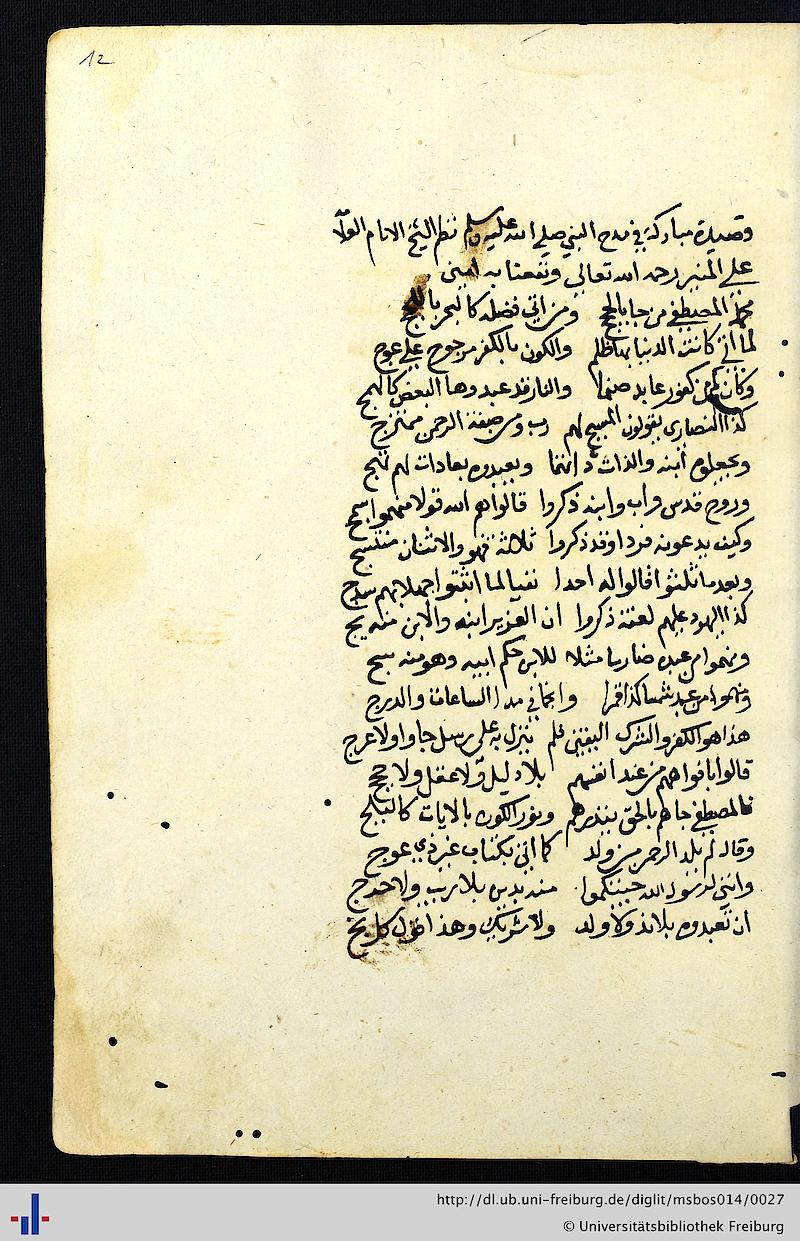 12
وقصيدة مباركة في مدح النبي صلي الله عليه وسلم نظم الشيخ الامام
علي المنير رحمه الله تعالي ونفعنا به امين
محمد المصطفي من جا بالحجج ومن اتي فضله كالبحر باللجج
لما اتي كانت الدنيا بها ظلم والكون بالكفر مرجوج علي عوج
وكان كم من كفور عابد صنما والنار قد عبدوها البعض كالهمج
كذا النصاري يقولون المسيح لهم رب ومن صبغة الرحمن ممتزج
ويجعلوه ابنه والذات ويعبدوه بعادات لهم نهج
وروح قدس واب وابنه ذكروا قالوا هم الله قولا منهموا سمج
وكيف يدعونه فردا وقد ذكروا ثلاثة فهو والاثنان منتسج
وبعد ما ثلثوا قالوا له احدا نفيا لما اثبتوا جهلا بهم سمج
كذا اليهود عليهم لعنة ذكروا ان العزير ابنه والابن منه يج
ومنهموا من عبده ضاربا مثلا للابن حكم ابيه وهو منه يج
ومنهموا من عبد شمسا كذا قمرا وانجما في مدا الساعات والدرج
هذا هو الكفر والشرك اليقين فلم ينزل به علي رسل جاوا ولا عرج
قالوا بافواههم من عند انفسهم بلا دليل ولا عقل ولا حجج
فالمصطفي جاهم بالحق ينذرهم ونور الكون بالايات كالبلج
وقال لم يلد الرحمن من ولد كما اتي بكتاب غير ذي عوج
وانني لرسول الله جيتكموا منه بدين بلا ريب ولا حرج
ان تعبدوه بلا ند ولا ولد ولا شريك وهذا اقول كل يج
http://dl.ub.uni-freiburg.de/diglit/msbos014/0027
© Universitätsbibliothek Freiburg